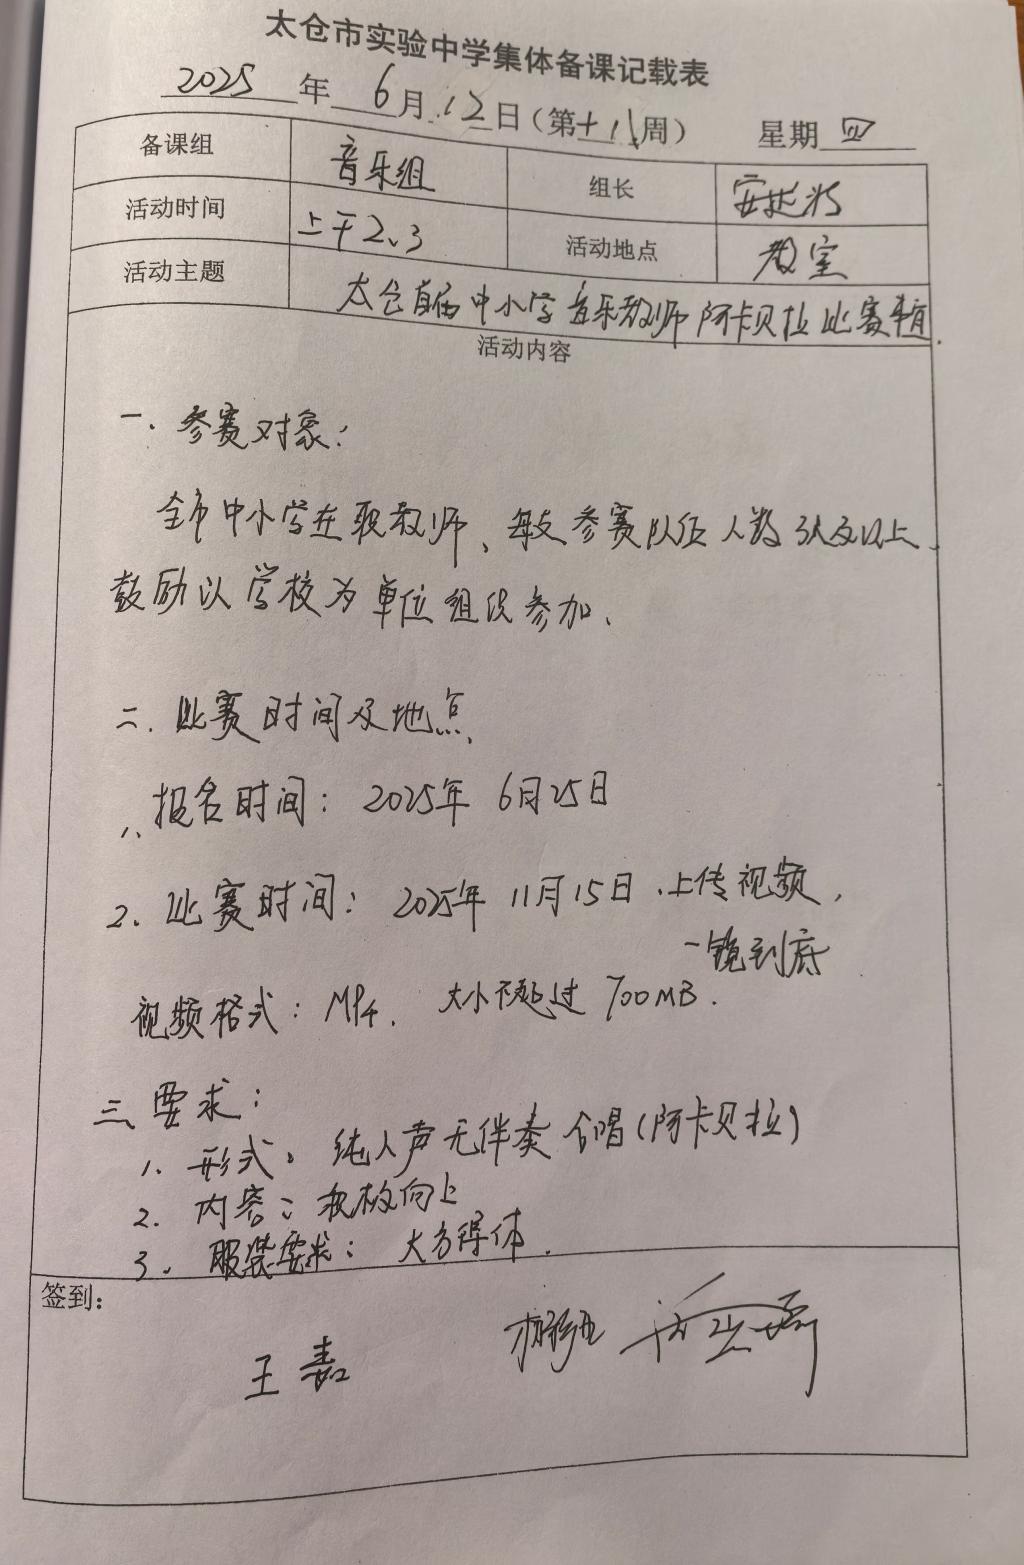 太仓市实验中学集体备课记载表
2025年6月12日(第十八周) 星期四
备课组 音乐组 组长
活动时间 上午2、3 活动地点 教室
活动主题 太仓首届中小学音乐教师阿卡贝拉比赛事宜.
活动内容
一、参赛对象:
全市中小学在职教师、每支参赛队伍人数3人及以上、
鼓励以学校为单位组织参加、
二、比赛时间及地点、
1、报名时间: 2025年6月25日
2、比赛时间: 2025年11月15日、上传视频,
一镜到底
视频格式: MP4、 大小不超过700MB.
三、要求:
1、形式: 纯人声无伴奏合唱(阿卡贝拉)
2、内容: 积极向上
3、服装要求: 大方得体.
签到:
王嘉